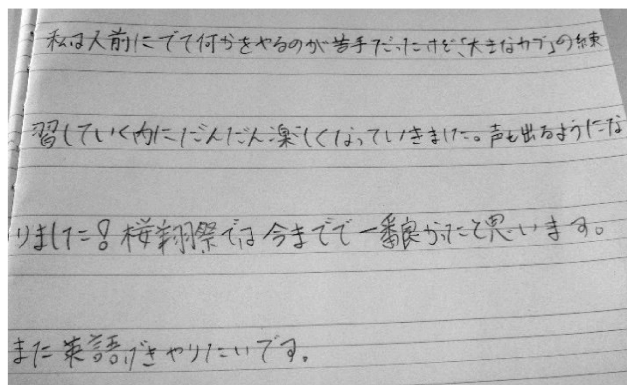 私は人前にでて何かをやるのが苦手だったけど「大きなカブ」の練
習していく内にだんだん楽しくなっていきました。声も出るようにな
りました!桜翔祭では今までで一番良かったと思います。
また英語げきやりたいです。